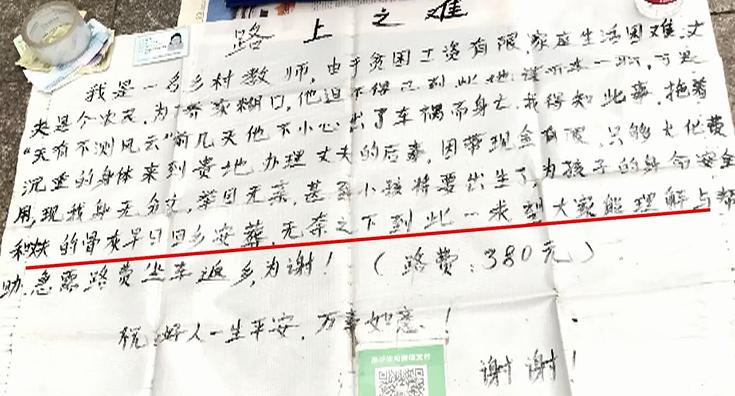 路上之难
我是一名乡村教师,由于贫困工资有限,家庭生活困难,丈
夫是个农民,为了养家糊口,他迫不得已到此地
"天有不测风云"前几天他不小心出了车祸而身亡.我得知此事.拖着
沉重的身体来到贵地办理丈夫的后事,因带现金有限,只够火化费
用,现我身无分文,举目无亲,甚至小孩将要出生了,为孩子的生命安全
和夫的骨灰早日回乡安葬,无奈之下到此一求,望大家能理解与帮
助.急需路费坐车返乡,为谢!(路费:380元)
祝:好人一生平安,万事如意!
谢谢!